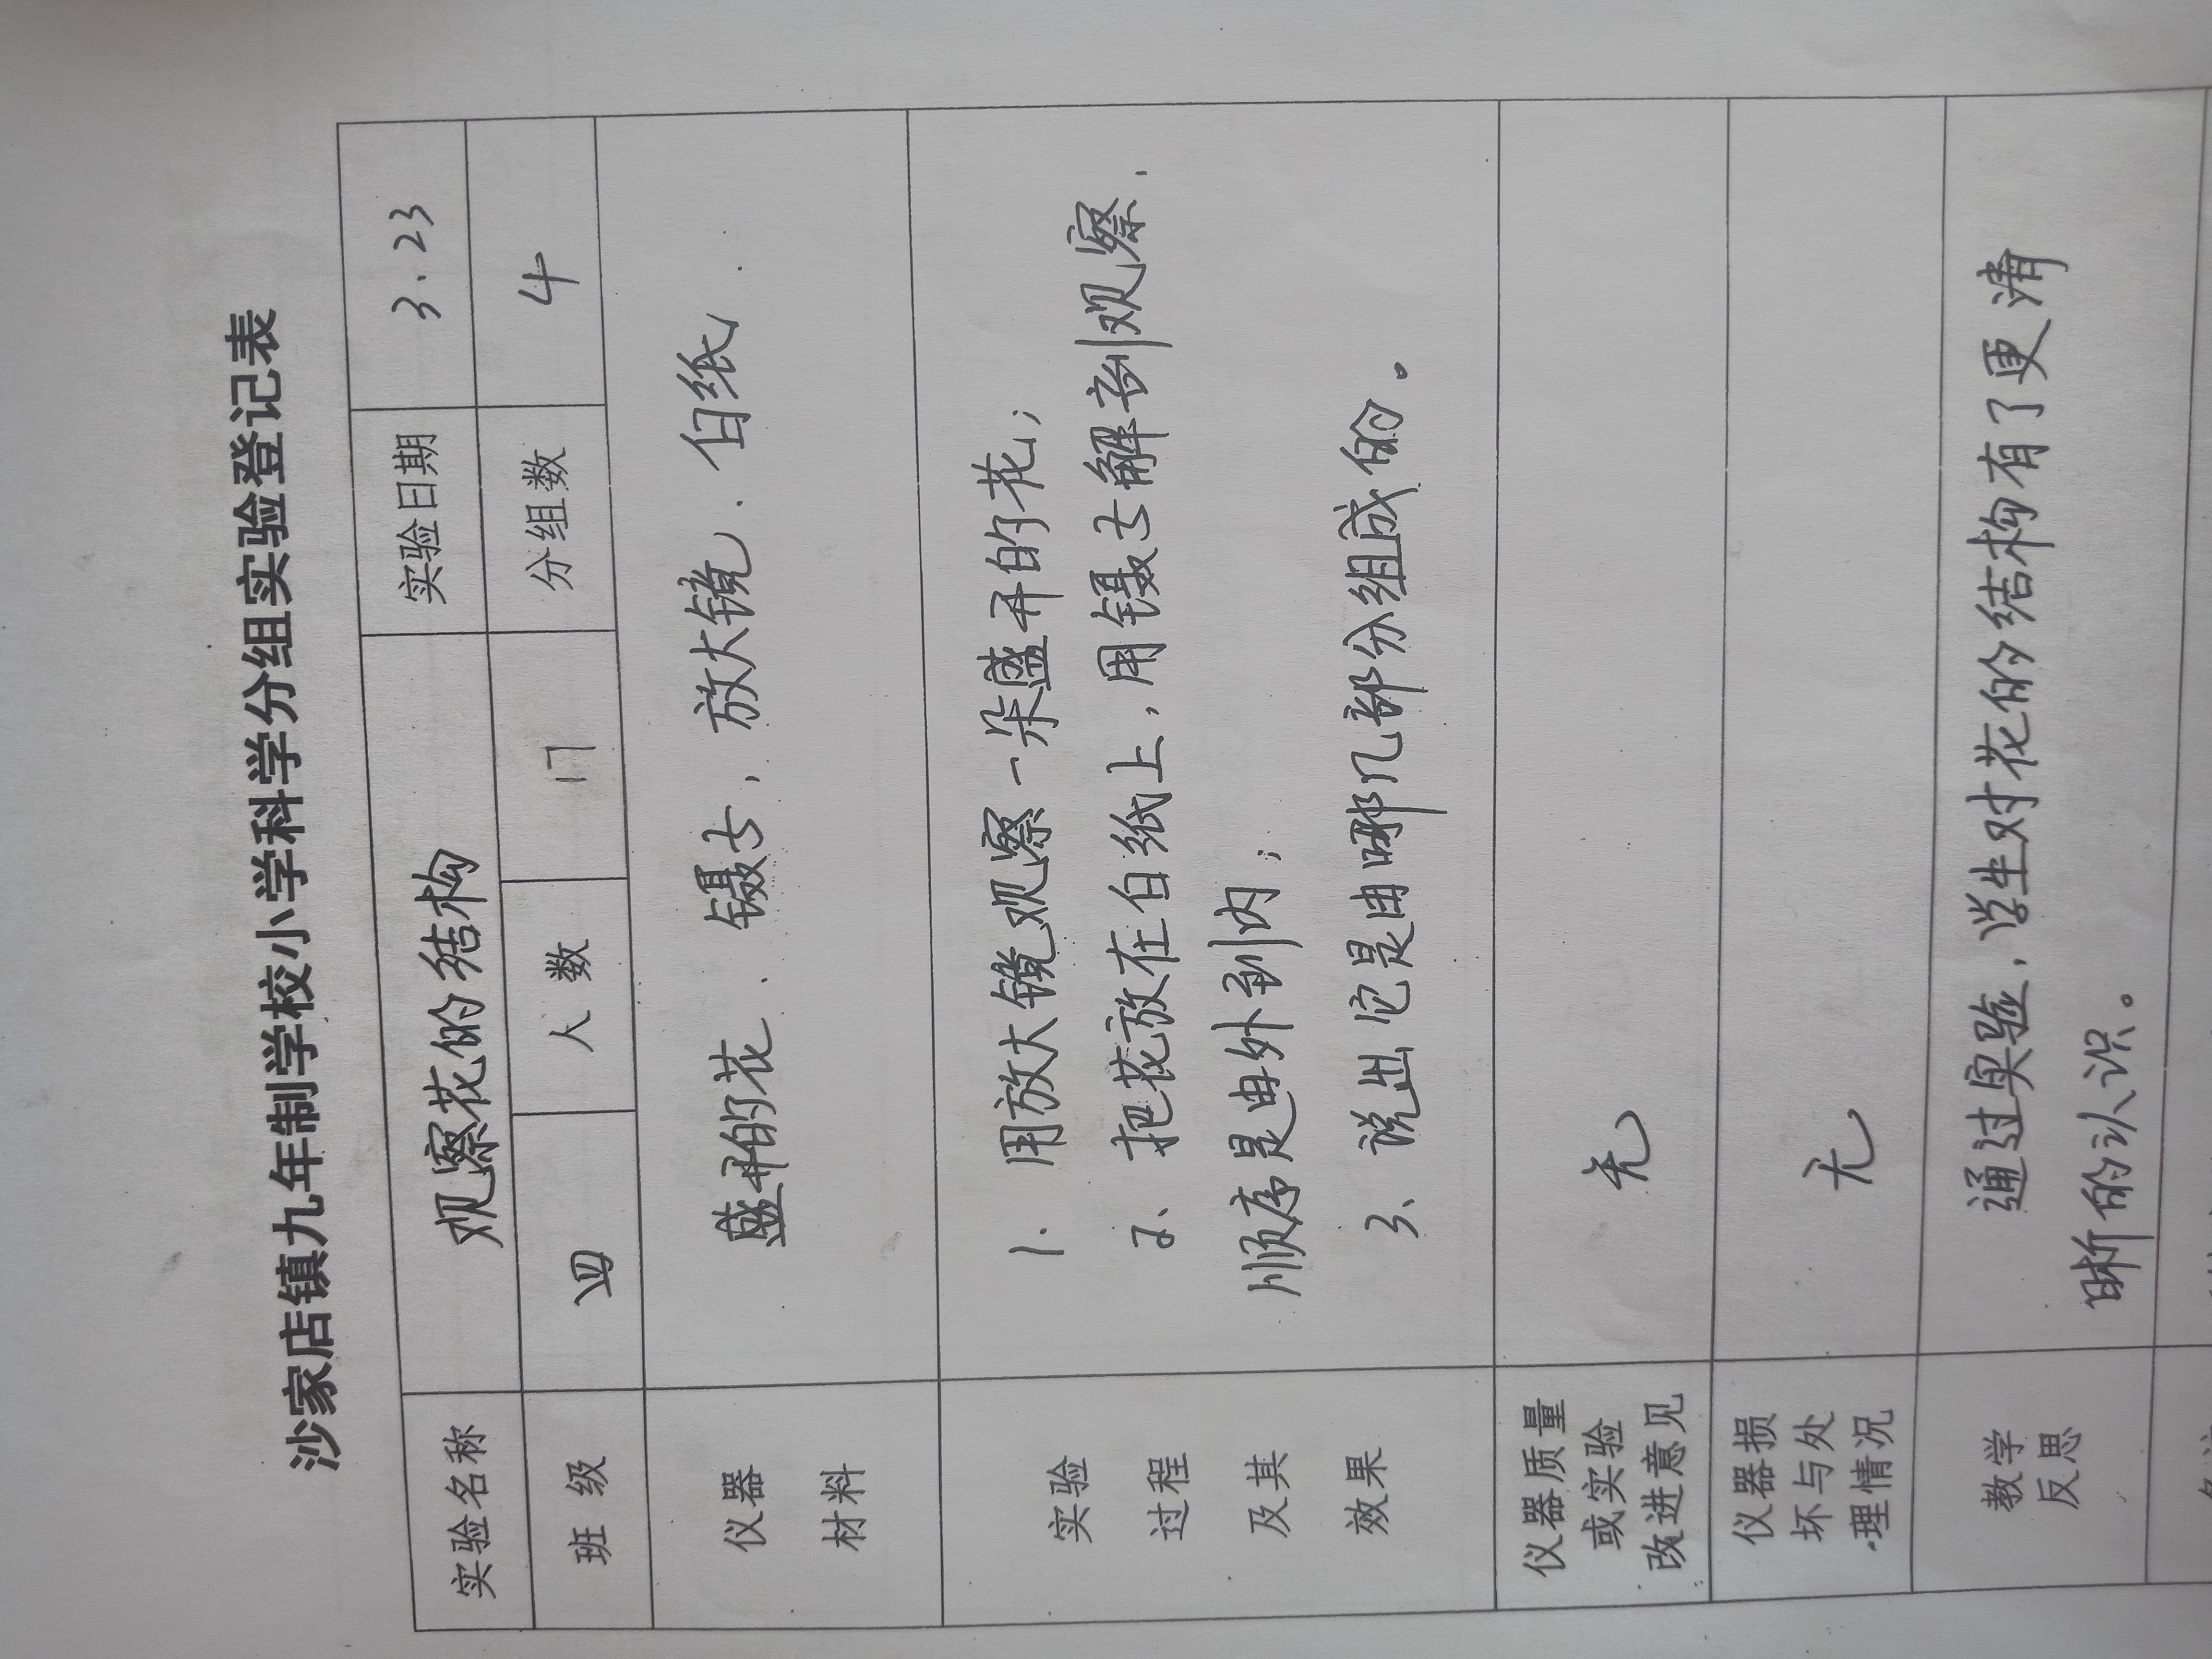 沙家店镇九年制学校小学科学分组实验登记表
实验名称 观察花的结构 实验日期 3.23
班级 四 人数 17 分组数 4
仪器
材料
盛开的花、镊子、放大镜、白纸.
实验
过程
及其
效果
1. 用放大镜观察一朵盛开的花;
2、把花放在白纸上,用镊子解剖观察,
顺序是由外到内;
3、说出它是由哪几部分组成的。
仪器质量
或实验
改进意见
无
仪器损
坏与处
理情况
无
教学
反思
通过实验,学生对花的结构有了更清
晰的认识。